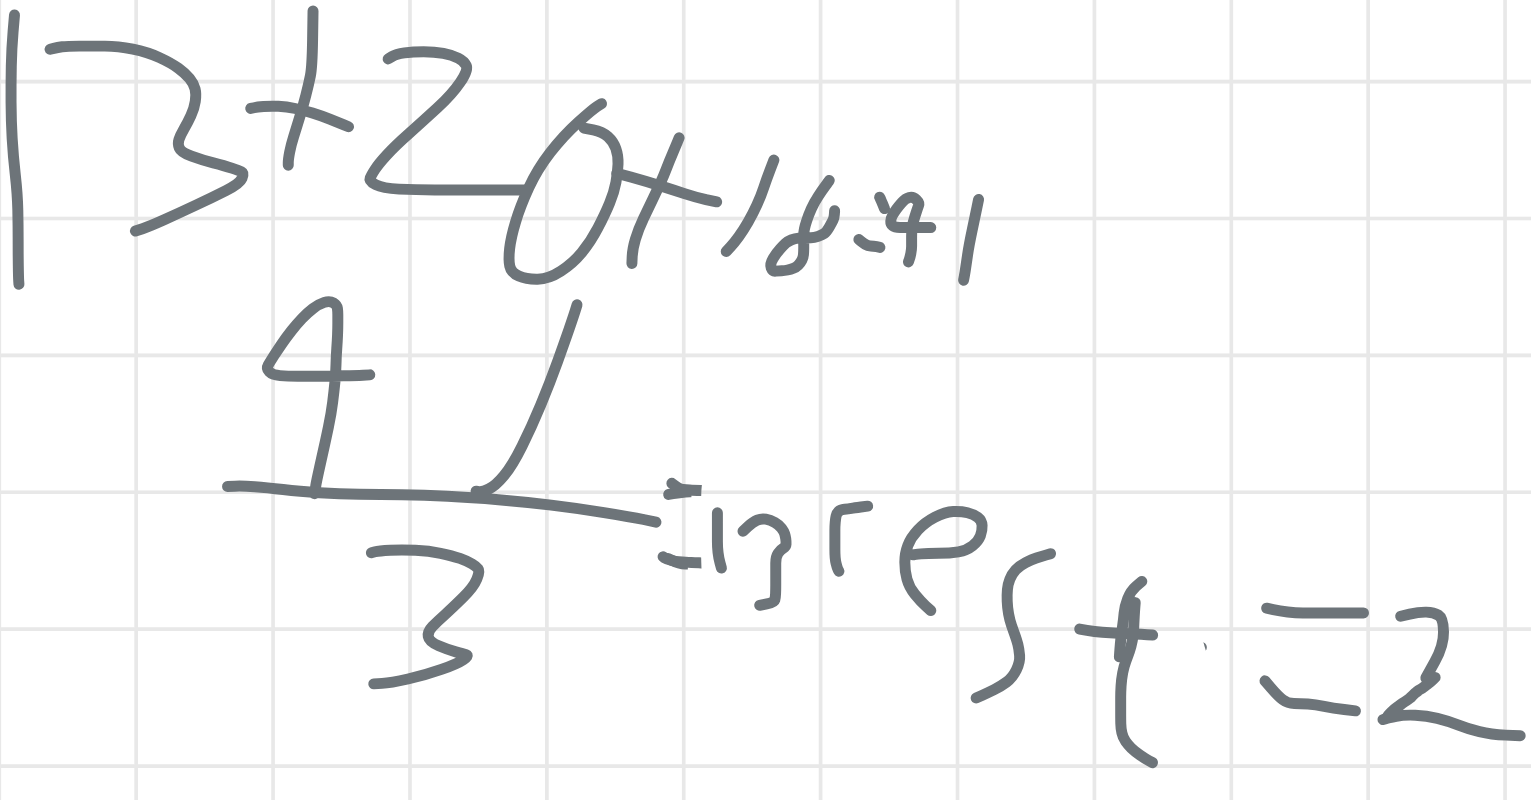 13+20+18=41
41
3
=13 rest =2